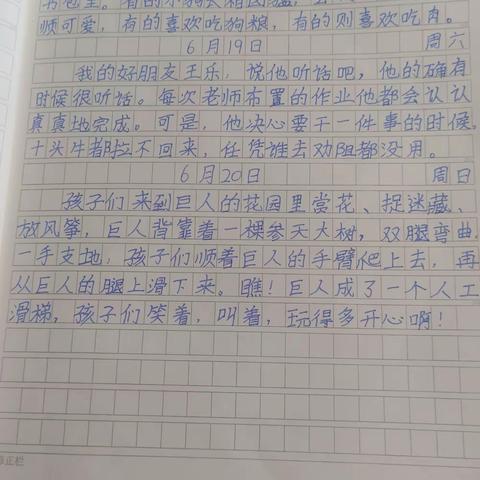 书包里。有的小狗长相凶猛，
顺可爱，有的喜欢吃狗粮，有的则喜欢吃肉。
6月19日 周六
我的好朋友王乐，说他听话吧，他的确有
时候很听话。每次老师布置的作业他都会认认
真真地完成。可是，他决心要干一件事的时候，
十头牛都拉不回来，任凭谁去劝阻都没用。
6月20日 周日
孩子们来到巨人的花园里赏花、捉迷藏、
放风筝，巨人背靠着一棵参天大树，双腿弯曲，
一手支地，孩子们顺着巨人的手臂爬上去，再
从巨人的腿上滑下来。瞧！巨人成了一个人工
滑梯，孩子们笑着，叫着，玩得多开心啊！
修正栏